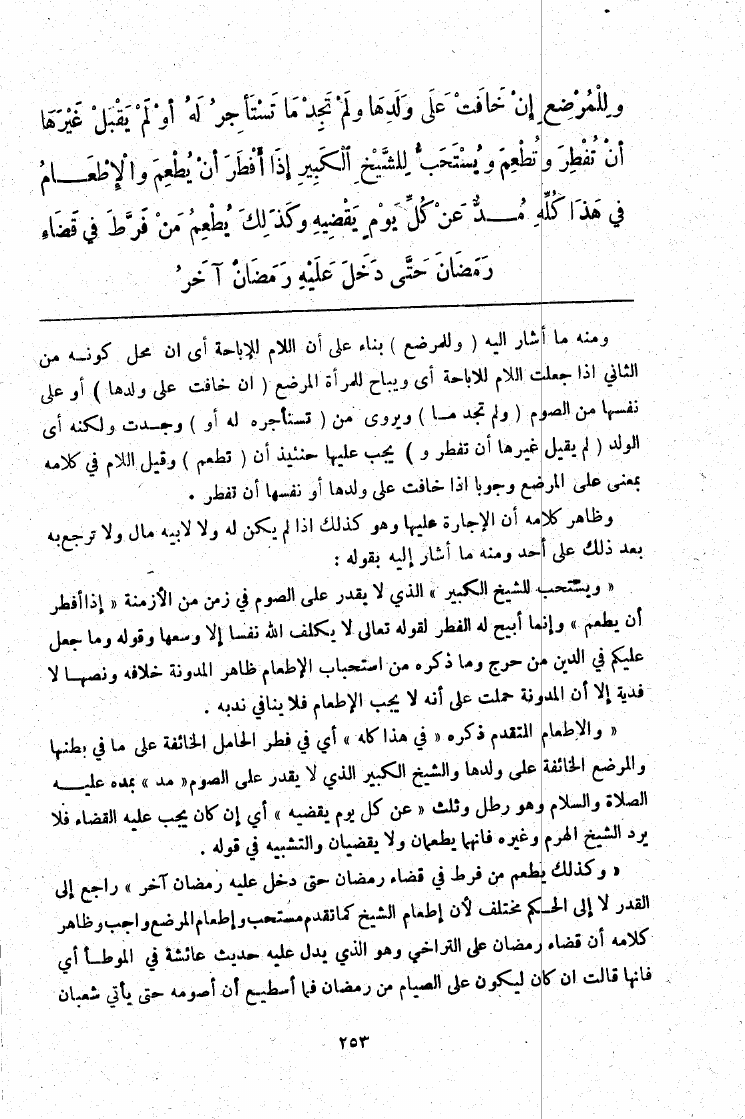 وَلِلْمُرْضِعِ إِنْ خَافَتْ عَلَى وَلَدِهَا وَلَمْ تَجِدْ مَا تَسْتَأْجِرُ لَهُ أَوْ لَمْ يَقْبَلْ غَيْرَهَا
أَنْ تُفْطِرَ وَتُطْعِمَ وَيُسْتَحَبُّ لِلشَّيْخِ الْكَبِيرِ إِذَا أَفْطَرَ أَنْ يُطْعِمَ وَالْإِطْعَامُ
فِي هَذَا كُلِّهِ مُدٌّ عَنْ كُلِّ يَوْمٍ يَقْضِيهِ وَكَذَلِكَ يُطْعِمُ مَنْ فَرَّطَ فِي قَضَاءِ
رَمَضَانَ حَتَّى دَخَلَ عَلَيْهِ رَمَضَانٌ آخَرُ
ومنه ما أشار اليه ( وللمرضع ) بناء على أن اللام للإباحة أى ان محل كونه من
الثاني اذا جعلت اللام للاباحة أى ويباح للمرأة المرضع ( ان خافت على ولدها ) أو على
نفسها من الصوم ( ولم تجد ما ) ويروى من ( تستأجره له أو ) وجدت ولكنه أى
الولد ( لم يقبل غيرها أن تفطر و ) يجب عليها حنئيذ أن ( تطعم ) وقيل اللام في كلامه
بمعنى على المرضع وجوبا اذا خافت على ولدها أو نفسها أن تفطر .
وظاهر كلامه أن الإجارة عليها وهو كذلك اذا لم يكن له ولا لابيه مال ولا ترجع به
بعد ذلك على أحد ومنه ما أشار إليه بقوله :
« ويستحب للشيخ الكبير » الذي لا يقدر على الصوم في زمن من الأزمنة « إذا أفطر
أن يطعم » وإنما أبيح له الفطر لقوله تعالى لا يكلف الله نفسا إلا وسعها وقوله وما جعل
عليكم في الدين من حرج وما ذكره من استحباب الإطعام ظاهر المدونة خلافه ونصها لا
فدية إلا أن المدونة حملت على أنه لا يجب الإطعام فلا ينافي ندبه .
« والإطعام المتقدم ذكره « في هذا كله » أي في فطر الحامل الخائفة على ما في بطنها
والمرضع الخائفة على ولدها والشيخ الكبير الذي لا يقدر على الصوم « مد » بمده عليه
الصلاة والسلام وهو رطل وثلث « عن كل يوم يقضيه » أي إن كان يجب عليه القضاء فلا
يرد الشيخ الهرم وغيره فانهما يطعمان ولا يقضيان والتشبيه في قوله .
« وكذلك يطعم من فرط في قضاء رمضان حتى دخل عليه رمضان آخر » راجع إلى
القدر لا إلى الحكم مختلف لأن إطعام الشيخ كما تقدم مستحب وإطعام المرضع واجب وظاهر
كلامه أن قضاء رمضان على التراخي وهو الذي يدل عليه حديث عائشة في الموطأ أي
فانها قالت ان كان ليكون على الصيام من رمضان فما أسطيع أن أصومه حتى يأتي شعبان
٢٥٣